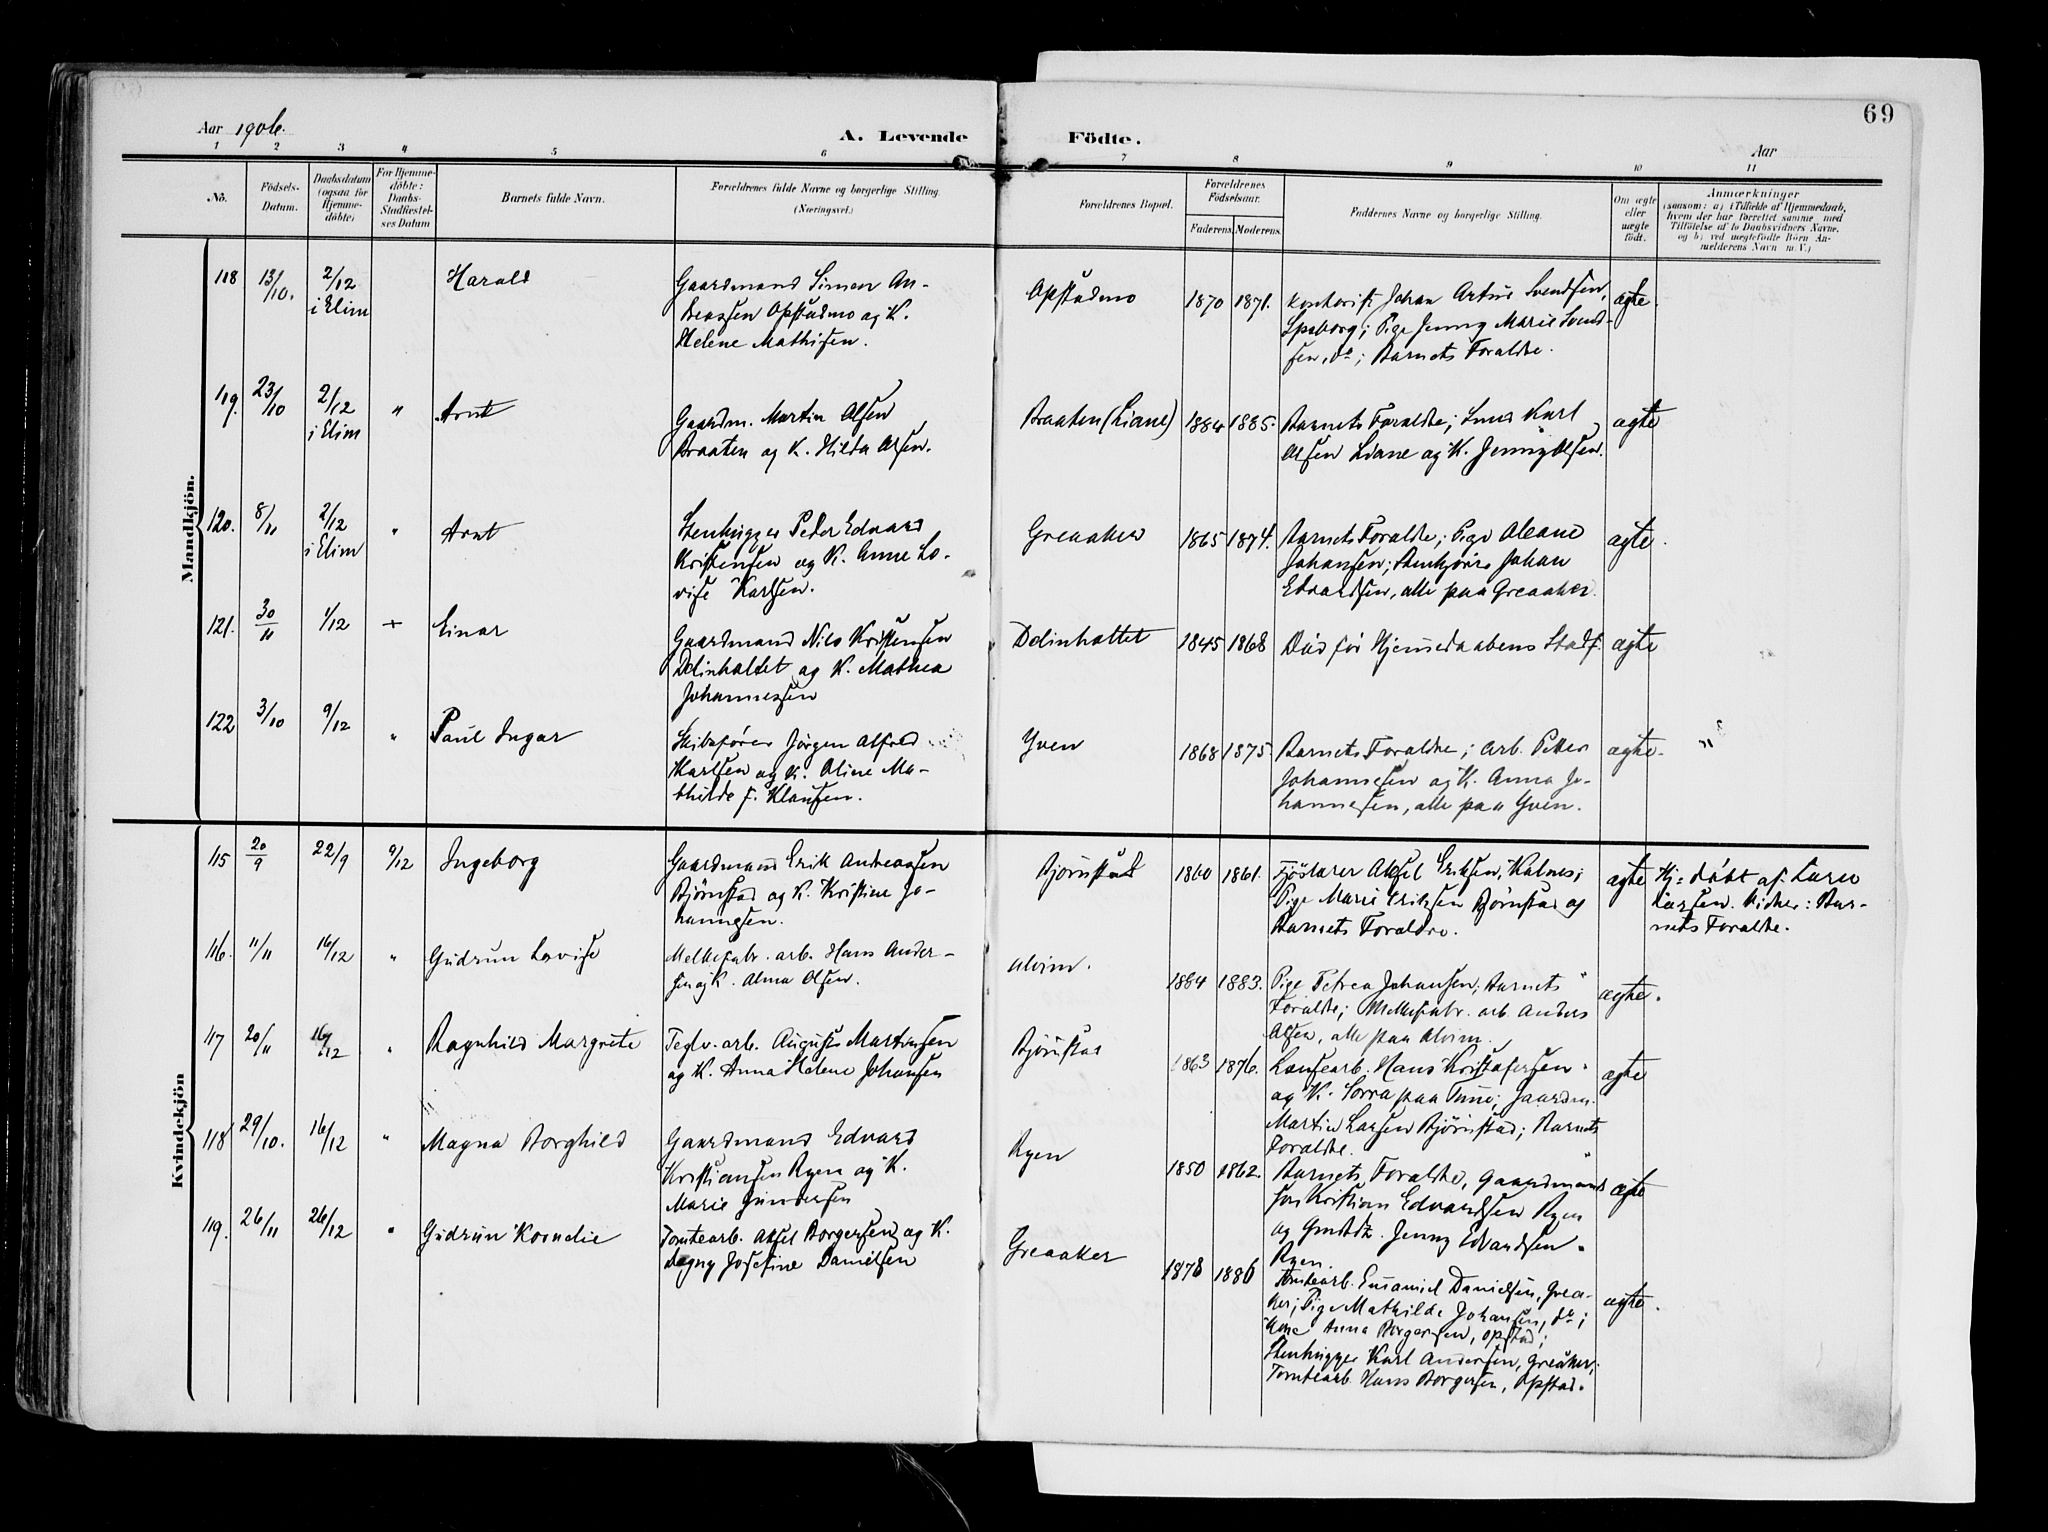 69
Aar 1906.
A. Levende Födte.
Aar
1 2 3 4 5 6 7 8 9 10 11
No.
Födsels-
Datum.
Daabsdatum
(ogsaa for
Hjemme-
döbte)
For Hjemme-
döbte:
Daabs-
Stadfæstel-
ses Datum
Barnets fulde Navn.
Forældrenes fulde Navne og borgerlige Stilling.
(Næringsvei.)
Forældrenes Bopæl.
Forældrenes
Födselsaar.
Faderens. Moderens.
Faddernes Navne og borgerlige Stilling.
Om ægte
eller
uægte
födt.
Anmærkninger
(saasom: a) i Tilfælde af Hjemmedaab,
hvem der har forrettet samme, med
Tilföielse af to Daabsvidners Navne,
og b) ved uægtefödte Börn An-
melderens Navn m. V.)
Mandkjön.
118 13/10. 2/12
i Elim
Harald
Gaardmand Simen An-
dreassen Opstadmo og K.
Helene Mathisen.
Opstadmo
1870 1871.
Kontorist Johan Artur Svendsen,
Spsborg; Pige Jenny Marie Svend-
sen, do; Barnets Foraldre.
ægte.
119. 23/10 2/12
i Elim
" Arnt
Gaardm. Martin Olsen
Braaten og K. Hilda Olsen.
Braaten (Liane)
1884 1885.
Barnets Foraldre; Smed Karl
Olsen Liane og K. Jenny Olsen.
ægte
120. 8/11 2/12
i Elim
" Arnt
Stenhugger Peder Edvard
Kristensen og K. Anne Lo-
vise Karlsen.
Greaaker
1865 1874.
Barnets Foraldre; Pige Oleane
Johansen; Stenkjører Johan
Edvardsen, alle paa Greaaker.
ægte.
121. 30/11 1/12 + Einar
Gaardmand Nils Kristensen
Delinhaltet og K. Mathea
Johannessen
Delinhattet
1845 1868
Død før Hjemmedaabens Stadf.
ægte
122 3/10 9/12 " Paul Ingar
Skibsfører Jørgen Alfred
Karlsen og K. Oline Ma-
thilde f. Klausen.
Yven
1868 1875.
Barnets Foraldre; arb. Petter
Johannesen og K. Anna Jo-
hannesen, alle paa Yven.
ægte. "
Kvindekjön
115 20/9 22/9 9/12 Ingeborg
Gaardmand Erik Andreassen
Bjørnstad og K. Kristine Jo-
hannesen.
Bjørnstad
1860 1861.
Fjøskarer Aksel Eriksen, Kalnes;
Pige Marie Eriksen Bjørnstad og
Barnets Foraldre.
ægte
Hj= døbt af Lars
Larsen. Vidner: Bar-
nets Foraldre.
116. 11/11 16/12 " Gudrun Lovise
Melkefabr. arb. Hans Ander-
sen og K. Alma Olsen.
Alvim.
1884 1883.
Pige Petrea Johansen; Barnets
Foraldre; Melkefabr. arb. Anders
Olsen, alle paa Alvim.
ægte.
117 20/11 16/12 " Ragnhild Margrete
Teglv. arb. August Martinsen
og K. Anna Helene Johansen
Bjørnstad
1863 1876.
Løusearb. Hans Kristofersen
og K. Sorra paa Tune; Gaardm.
Martin Larsen Bjørnstad; Barnets
Foraldre.
ægte
118 29/10. 16/12 " Magna Borghild
Gaardmand Edvard
Kristiansen Ryen og K.
Marie Gundersen
Ryen
1850 1862.
Barnets Foraldre, Gaardmands
søn Kristian Edvardsen Ryen
og Gmdsdt. Jenny Edvardsen
Ryen.
ægte
119. 26/11 26/12 " Gudrun Kornelie
Tomtearb. Aksel Borgersen og K.
Dagny Josefine Danielsen
Greaaker
1878 1886
Tomtearb. Emanuel Danielsen, Grea-
ker; Pige Mathilde Johansen, do;
Kone Anna Borgersen, Opstad;
Stenhugger Karl Andersen, Greaker;
Tomtearb. Hans Borgersen, Opstad.
ægte.